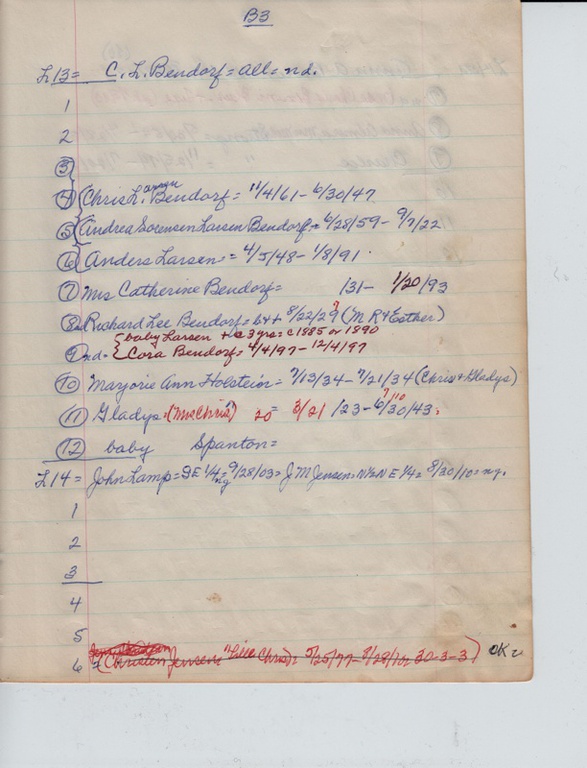 B3
L13 = C. L. Bendorf = all = nd.
1
2
3
4 Chris L. Bendorf = 11/4/61 - 6/30/47
5 Andrea Sorensen Larsen Bendorf = 6/28/59 - 9/7/22
6 Anders Larsen = 4/5/48 - 1/8/91
7 Mrs Catherine Bendorf = /31 - 1/20/93
8 Richard Lee Bendorf = b + + 8/22/29 ? (M R + Esther)
baby Larsen + a 3 yrs = c 1885 or 1890
9 nd = Cora Bendorf = 4/4/97 - 12/4/97
10 Marjorie Ann Holstein = 7/13/34 - 7/21/34 (Chris + Gladys)
11 Gladys = (Mrs Chris") 20 = 3/21 /23 - 6/30/43 = 7/10
12 baby Spanton =
L14 = John Lamp = SE 1/4 = ng 9/28/03 = J M Jensen = N 1/2 N E 1/4 = 8/30/10 = ng.
1
2
3
4
5
6 (Christen Jensen "Lille Chris") = 5/25/77 - 8/28/10 30-3-3) OK